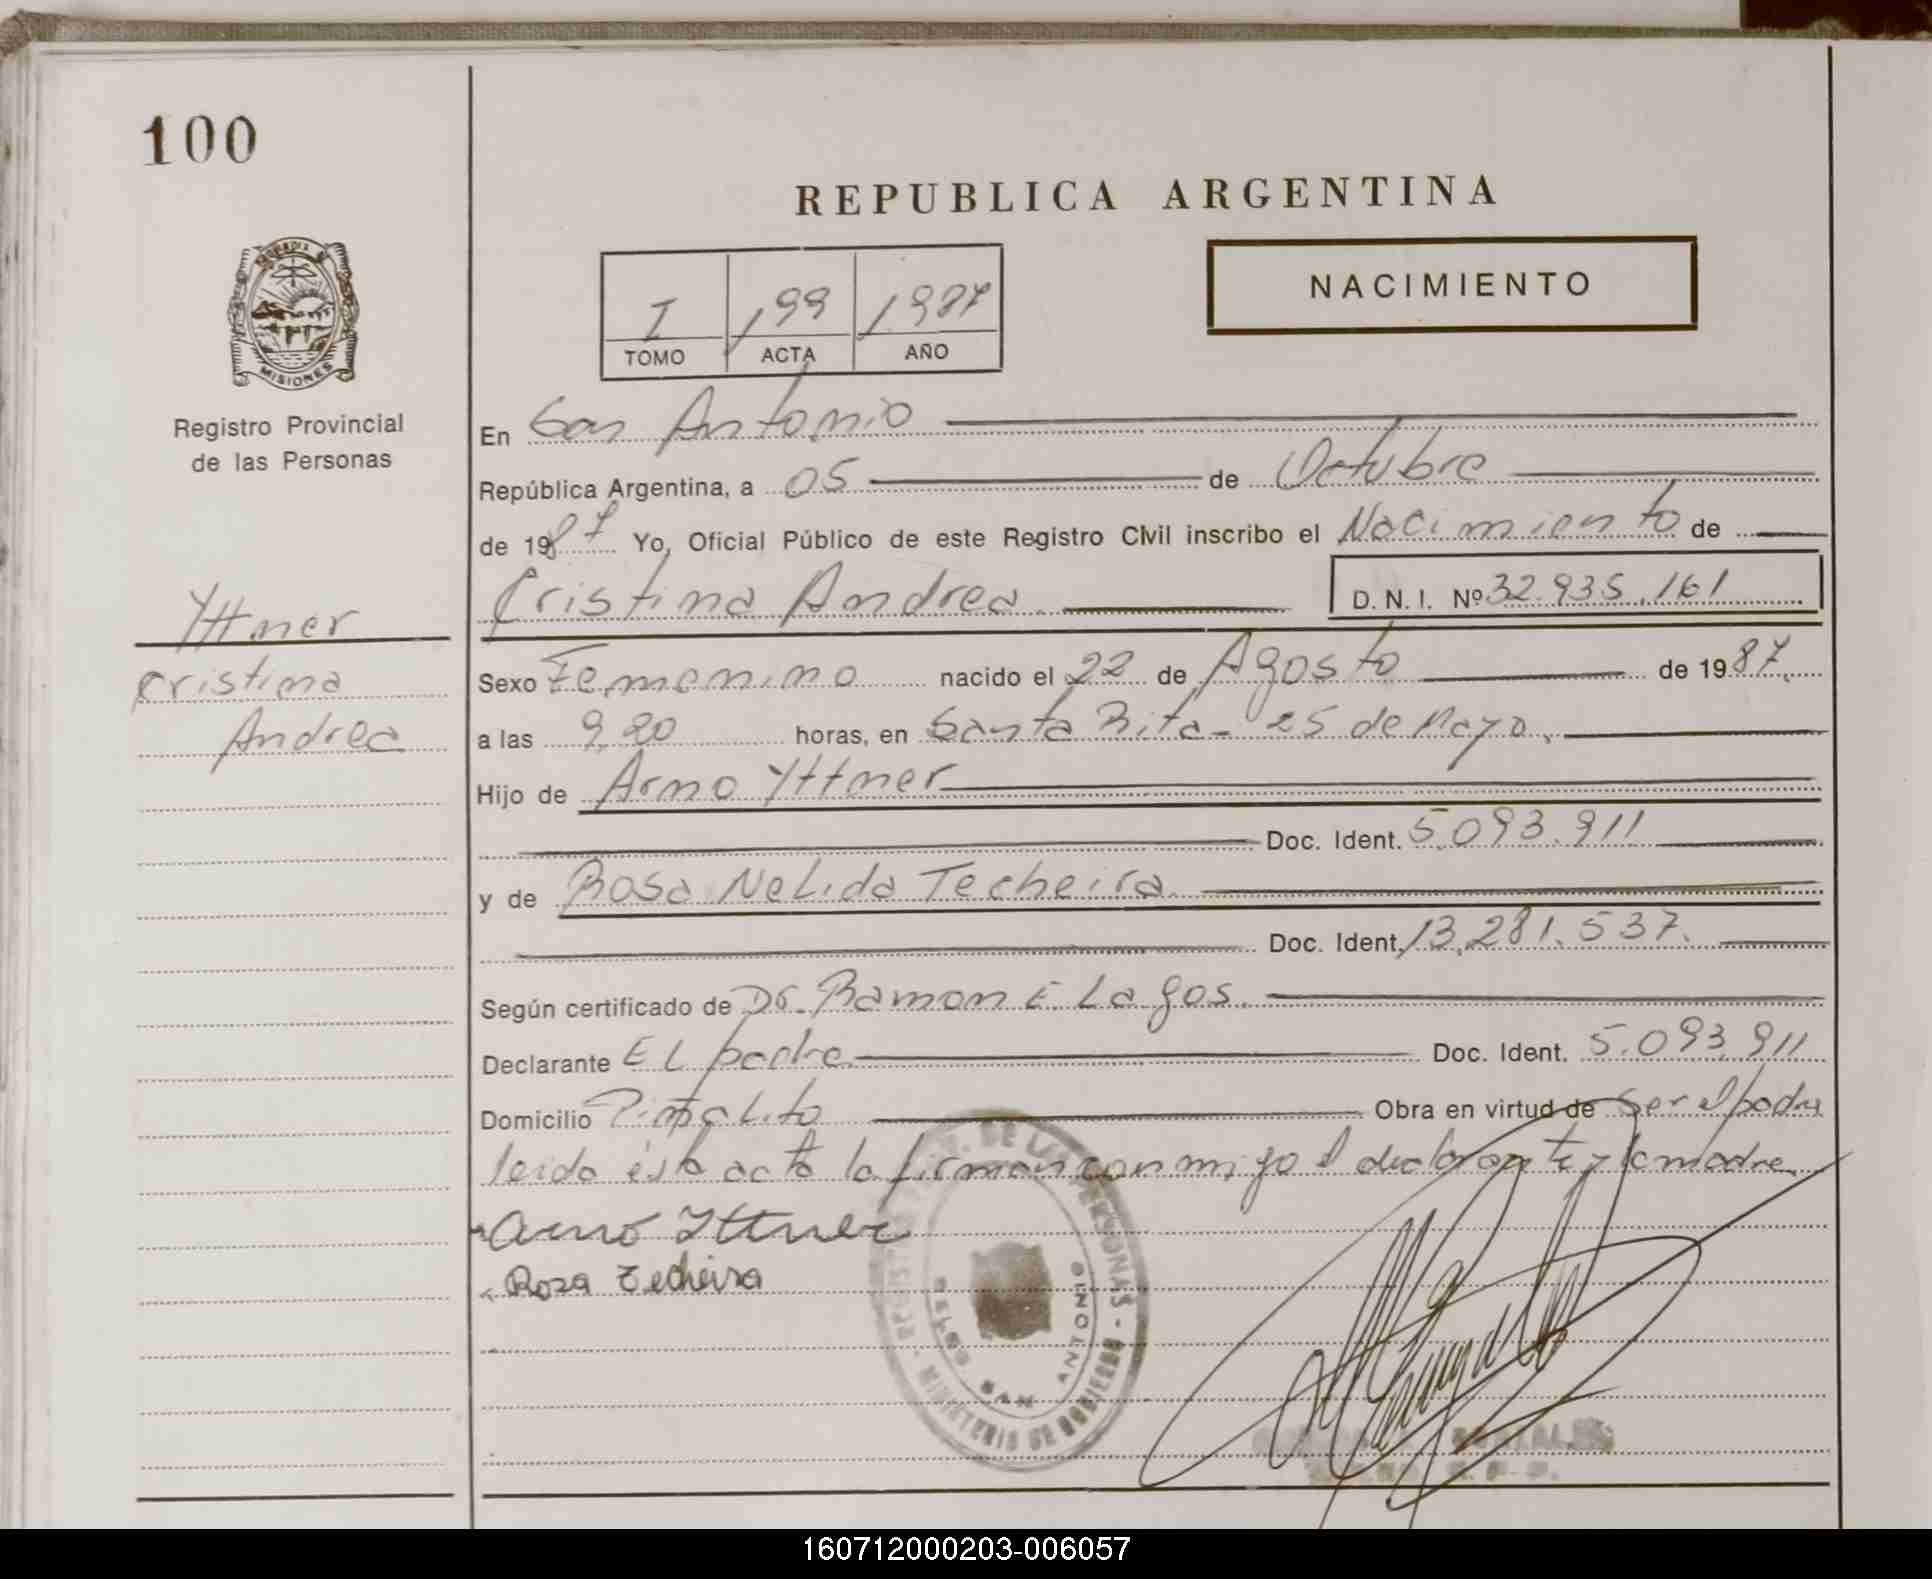 100
REPUBLICA ARGENTINA
NACIMIENTO
I 199 1987
TOMO ACTA AÑO
MISIONES
Registro Provincial
de las Personas
En San Antonio
República Argentina, a 05 de Octubre
de 1987 Yo, Oficial Público de este Registro Civil inscribo el Nacimiento de
Cristina Andrea D. N. I. Nº 32.935.161
Yttner
Cristina
Andrea
Sexo Femenino nacido el 22 de Agosto de 1987.
a las 9,20 horas, en Santa Rita - 25 de Mayo.
Hijo de Arno Yttner
Doc. Ident. 5.093.911
y de Rosa Nelida Techeira
Doc. Ident. 13.281.537.
Según certificado de Dr. Ramon E Lagos.
Declarante El padre Doc. Ident. 5.093.911
Domicilio Piñalito Obra en virtud de ser el padre
leida ésta acta la firman conmigo el declarante y la madre.
Arno Yttner
Rosa Techeira
DE LAS PERSONAS - MINISTERIO DE GOBIERNO
SAN ANTONIO
160712000203-006057